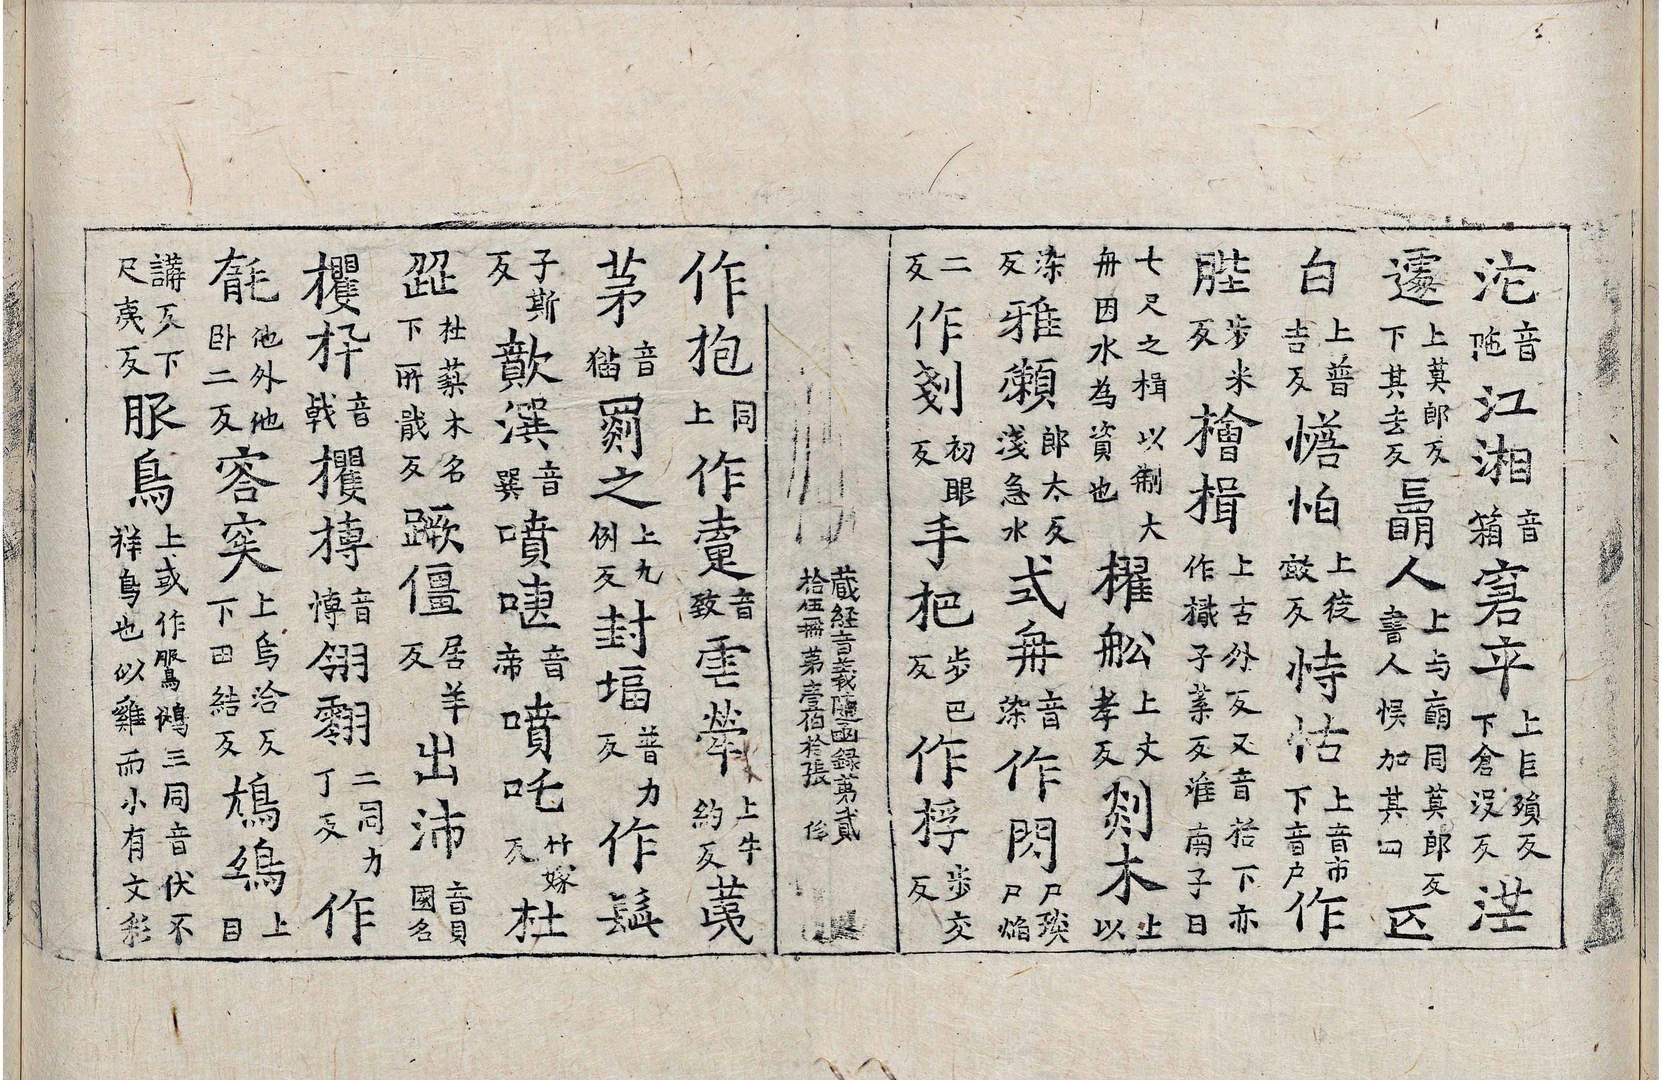 沱音陁江湘音箱窘卒上巨殞反下倉没反茫
遽上莫郎反下其去反朙人上与萌同莫郎反書人悮加其四叵
白上普吉反憺怕上徒敢反恃怙上音市下音户作
䏶步米反檜楫上古外反又音括下亦作檝子葉反淮南子曰
七尺之楫以制大舟因水為資也櫂舩上丈孝反剡木上以
染反雅瀬郎太反淺急水弍舟音染作閃尸琰尸焰
二反作剗初眼反手把步巴反作捊步交反
蔵経音義隨函録第貳
拾伍冊第壹伯拾張
作抱同上作疐音致雲犖上牛約反荑
茅音猫罽之上九例反封堛普力反作髢
子斯反歕潠音巽噴嚏音帝噴吒竹嫁反杜
跙杜蘂木名下所戢反蹶僵居羊反出沛音貝國名
欔枠音戟欔槫音慱翎翾二同力丁反作
毻他外他卧二反窊突上烏洽反下田結反鴆鴆上
講反下尺夷反服鳥上或作鵩鵩三同音伏不祥鳥也似雞而小有文彩目